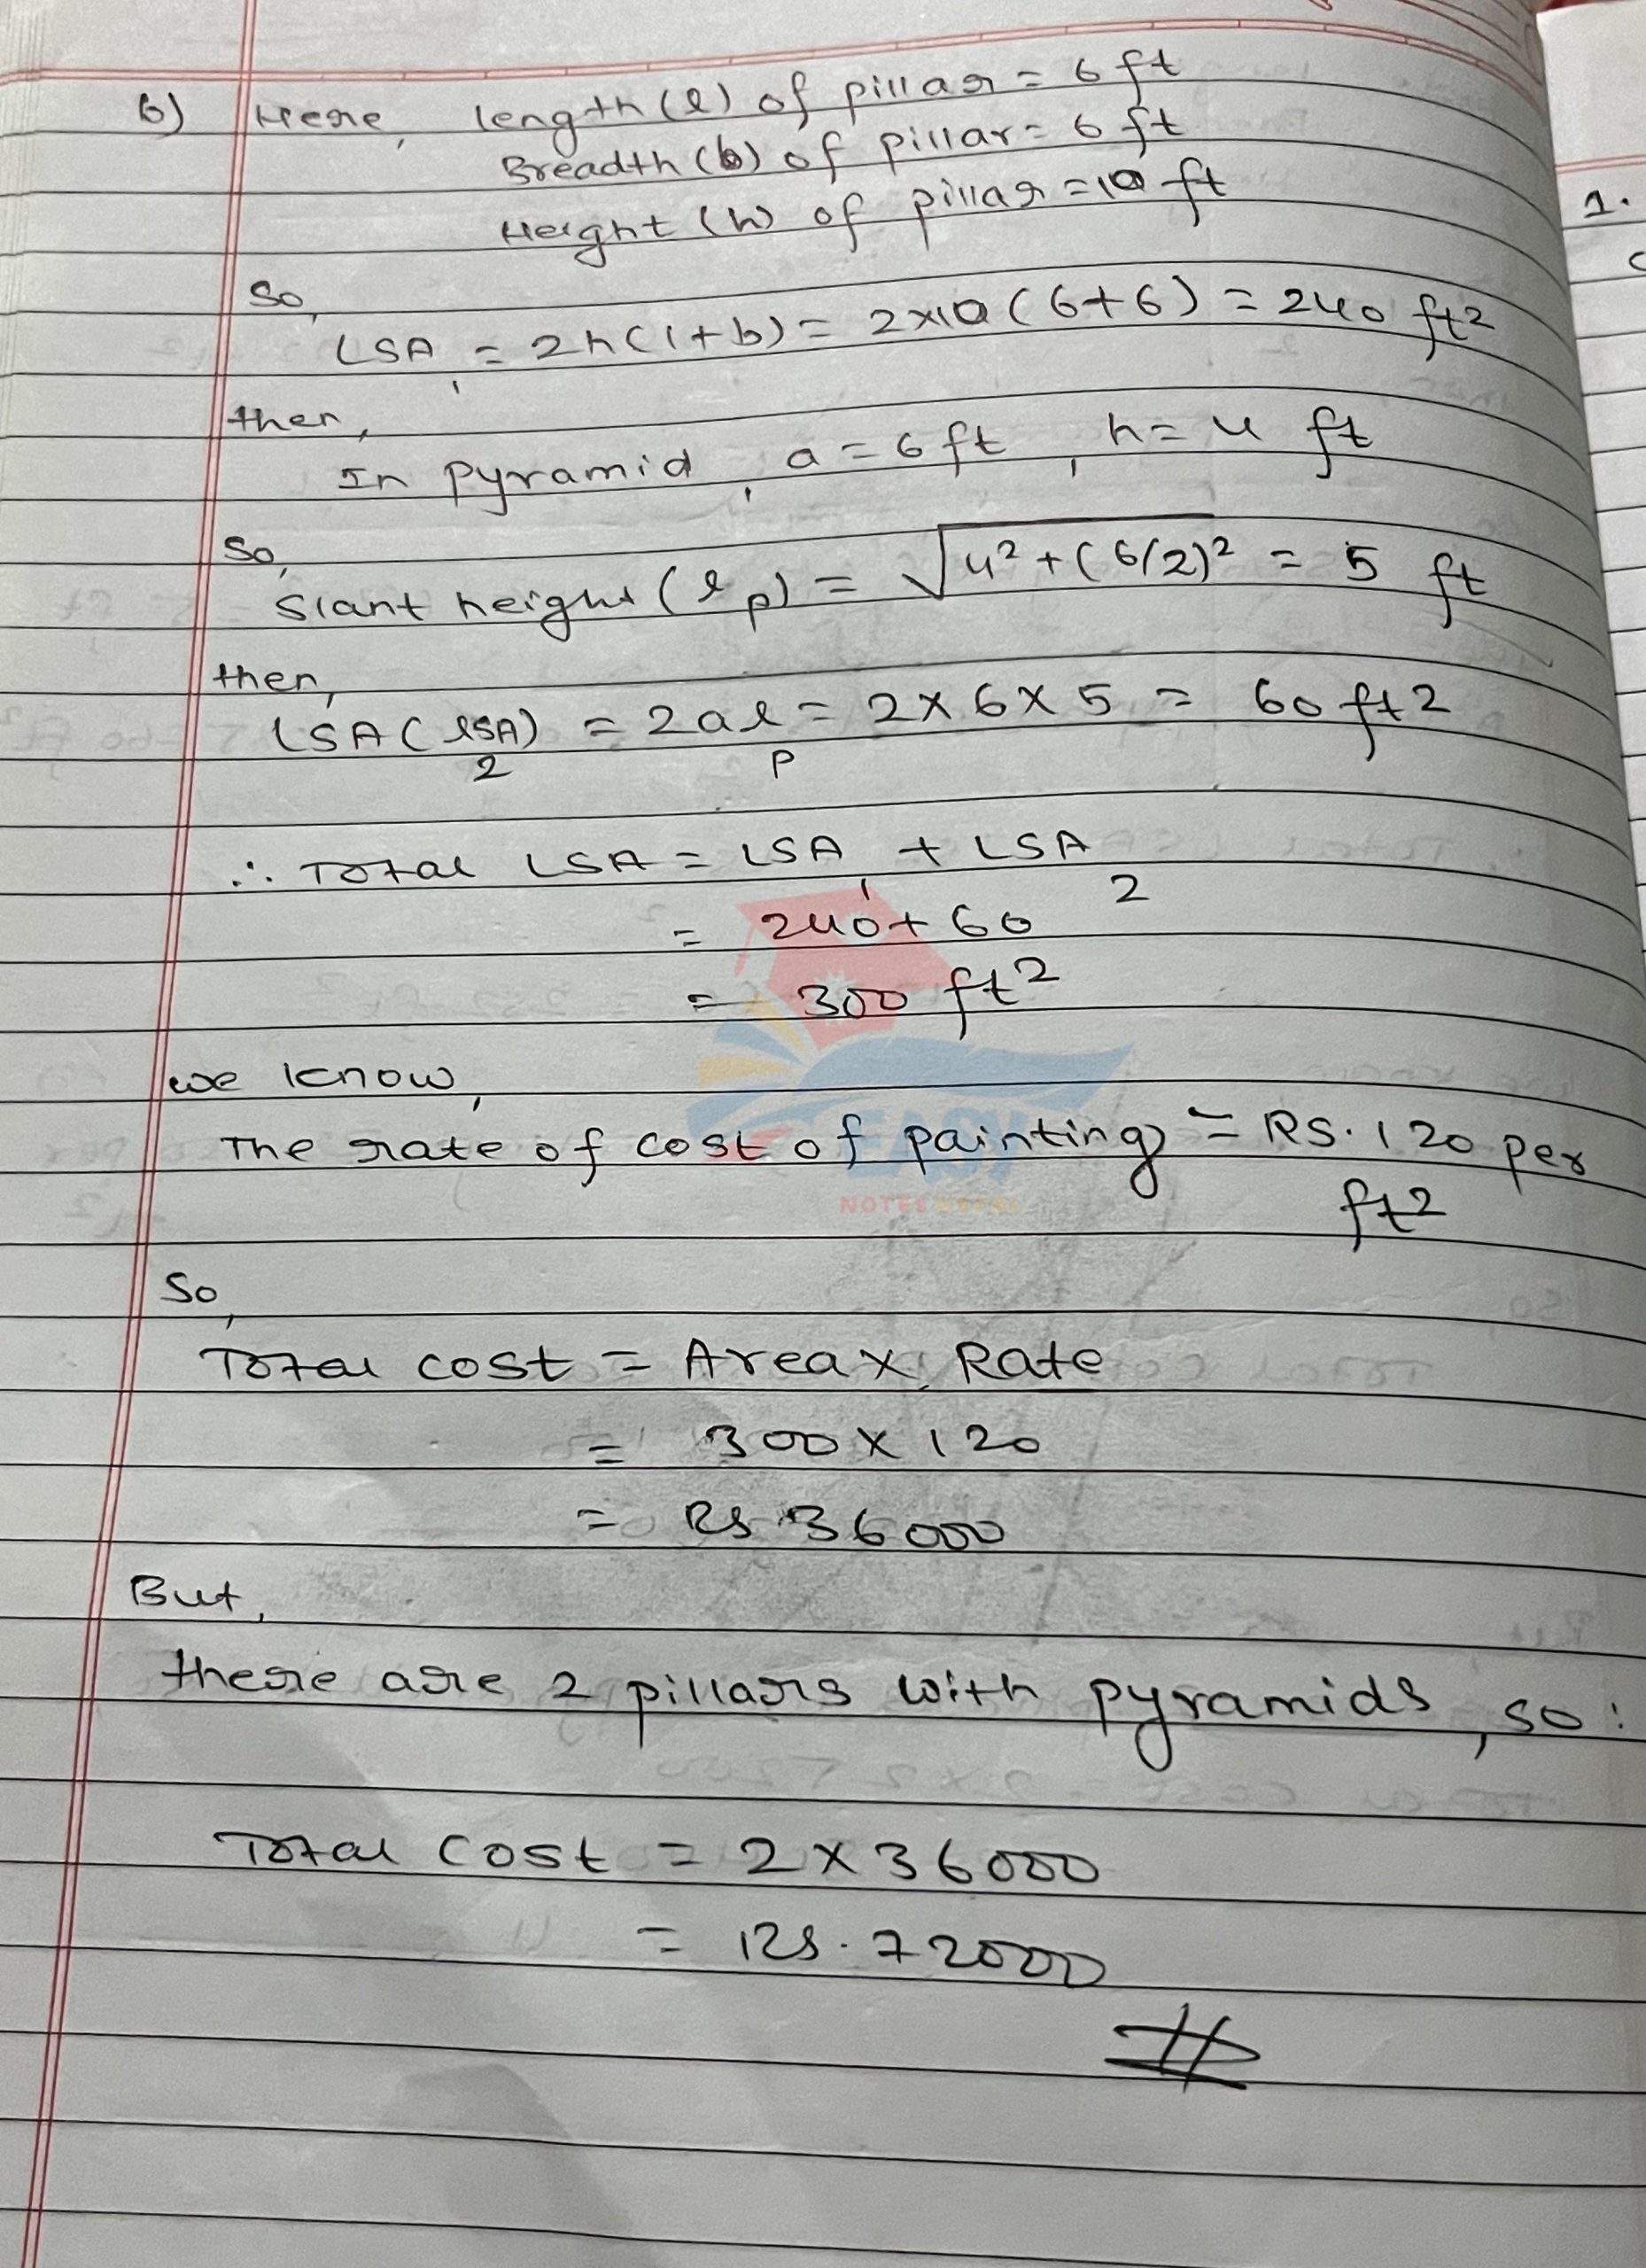 b) Here, length (l) of pillar = 6 ft
Breadth (b) of pillar = 6 ft
Height (h) of pillar = 10 ft
So,
LSA₁ = 2h(l+b) = 2×10(6+6) = 240 ft²
then,
In pyramid, a = 6 ft, h = 4 ft
So,
Slant height (l_p) = √4² + (6/2)² = 5 ft
then,
LSA (LSA)₂ = 2al_p = 2×6×5 = 60 ft²
∴ Total LSA = LSA₁ + LSA₂
= 240 + 60
= 300 ft²
we know,
The rate of cost of painting = Rs. 120 per
ft²
EASY
NOTES NEPAL
So,
Total cost = Area × Rate
= 300 × 120
= Rs 36000
But,
there are 2 pillars with pyramids, so:
Total cost = 2 × 36000
= Rs. 72000
#
1.